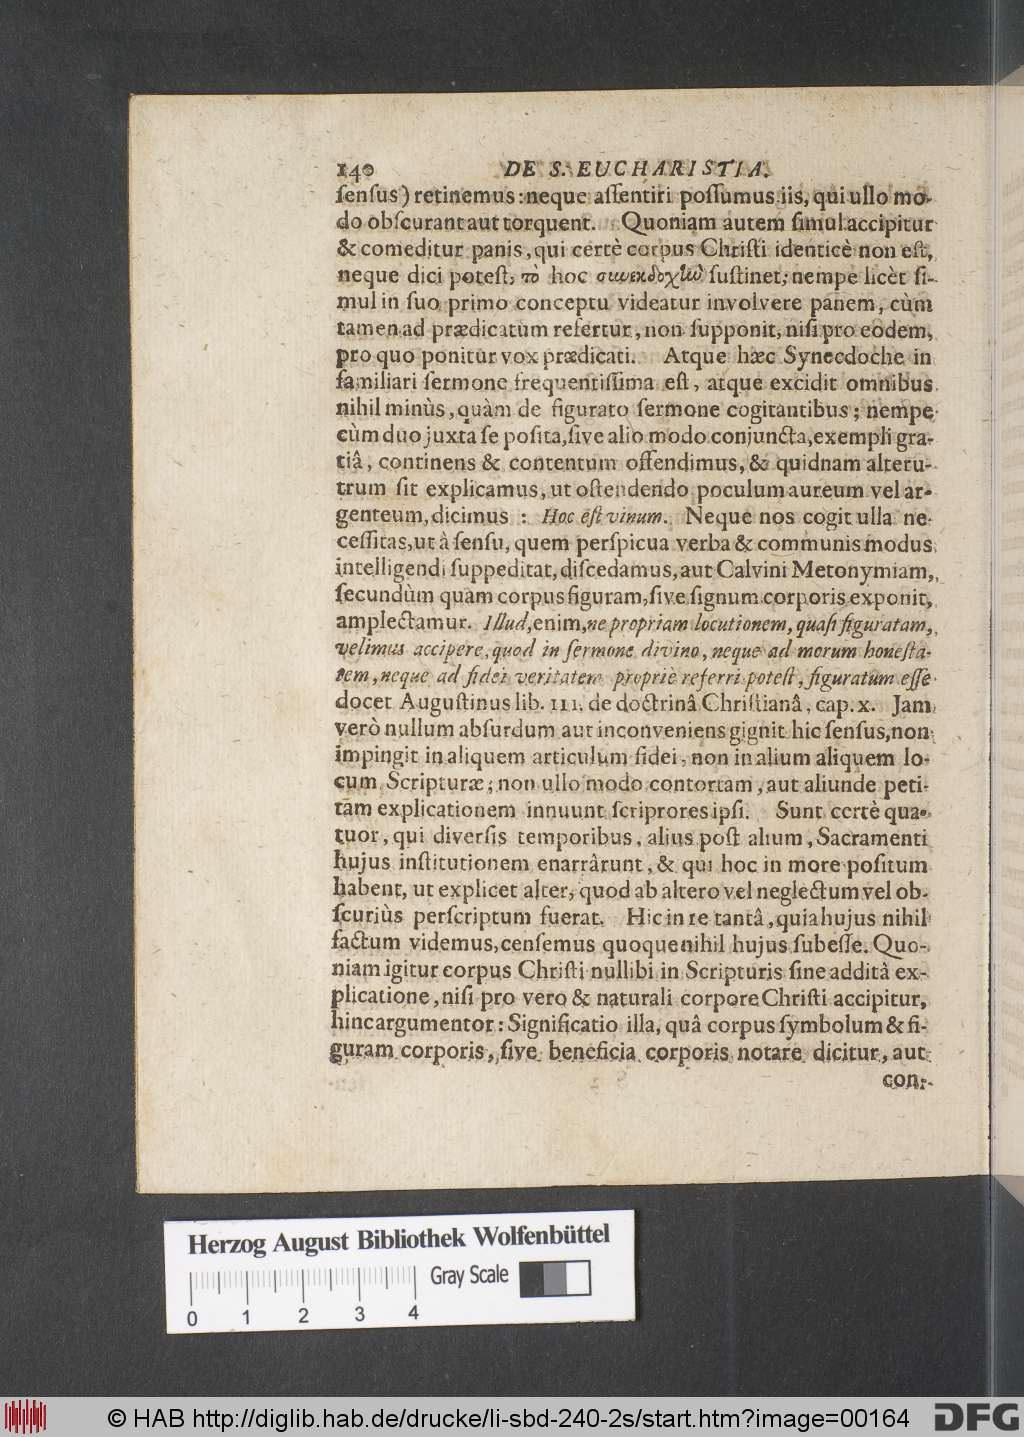 140 DE S. EUCHARISTIA.
ſenſus) retinemus: neque aſſentiri poſſumus iis, qui ullo mo-
do obſcurant aut torquent. Quoniam autem ſimul accipitur
& comeditur panis, qui certè corpus Chriſti identicè non eſt,
neque dici poteſt, τὸ hoc συνεκδοχὴν ſuſtinet; nempe licèt ſi-
mul in ſuo primo conceptu videatur involvere panem, cùm
tamen ad prædicatum refertur, non ſupponit, niſi pro eodem,
pro quo ponitur vox prædicati. Atque hæc Synecdoche in
familiari ſermone frequentiſſima eſt, atque excidit omnibus
nihil minùs, quàm de figurato ſermone cogitantibus; nempe
cùm duo juxta ſe poſita, ſive alio modo conjuncta, exempli gra-
tiâ, continens & contentum oſſendimus, & quidnam alteru-
trum ſit explicamus, ut oſtendendo poculum aureum vel ar-
genteum, dicimus : Hoc eſt vinum. Neque nos cogit ulla ne-
ceſſitas, ut à ſenſu, quem perſpicua verba & communis modus
intelligendi ſuppeditat, diſcedamus, aut Calvini Metonymiam,
ſecundùm quam corpus figuram, ſive ſignum corporis exponit,
amplectamur. Illud, enim, ne propriam locutionem, quaſi figuratam,
velimus accipere, quod in ſermone divino, neque ad morum honeſta-
tem, neque ad fidei veritatem propriè referri poteſt, figuratum eſſe
docet Auguſtinus lib. III. de doctrinâ Chriſtianâ, cap. x. Jam
verò nullum abſurdum aut inconveniens gignit hic ſenſus, non
impingit in aliquem articulum fidei, non in alium aliquem lo-
cum Scripturæ; non ullo modo contortam, aut aliunde peti-
tam explicationem innuunt ſcriprores ipſi. Sunt certè qua-
tuor, qui diverſis temporibus, alius poſt alium, Sacramenti
hujus inſtitutionem enarrârunt, & qui hoc in more poſitum
habent, ut explicet alter, quod ab altero vel neglectum vel ob-
ſcuriùs perſcriptum fuerat. Hic in re tantâ, quia hujus nihil
factum videmus, cenſemus quoque nihil hujus ſubeſſe. Quo-
niam igitur corpus Chriſti nullibi in Scripturis ſine additâ ex-
plicatione, niſi pro vero & naturali corpore Chriſti accipitur,
hinc argumentor: Significatio illa, quâ corpus ſymbolum & fi-
guram corporis, ſive beneficia corporis notare dicitur, aut
con-
Herzog August Bibliothek Wolfenbüttel
Gray Scale
0 1 2 3 4
© HAB http://diglib.hab.de/drucke/li-sbd-240-2s/start.htm?image=00164 DFG